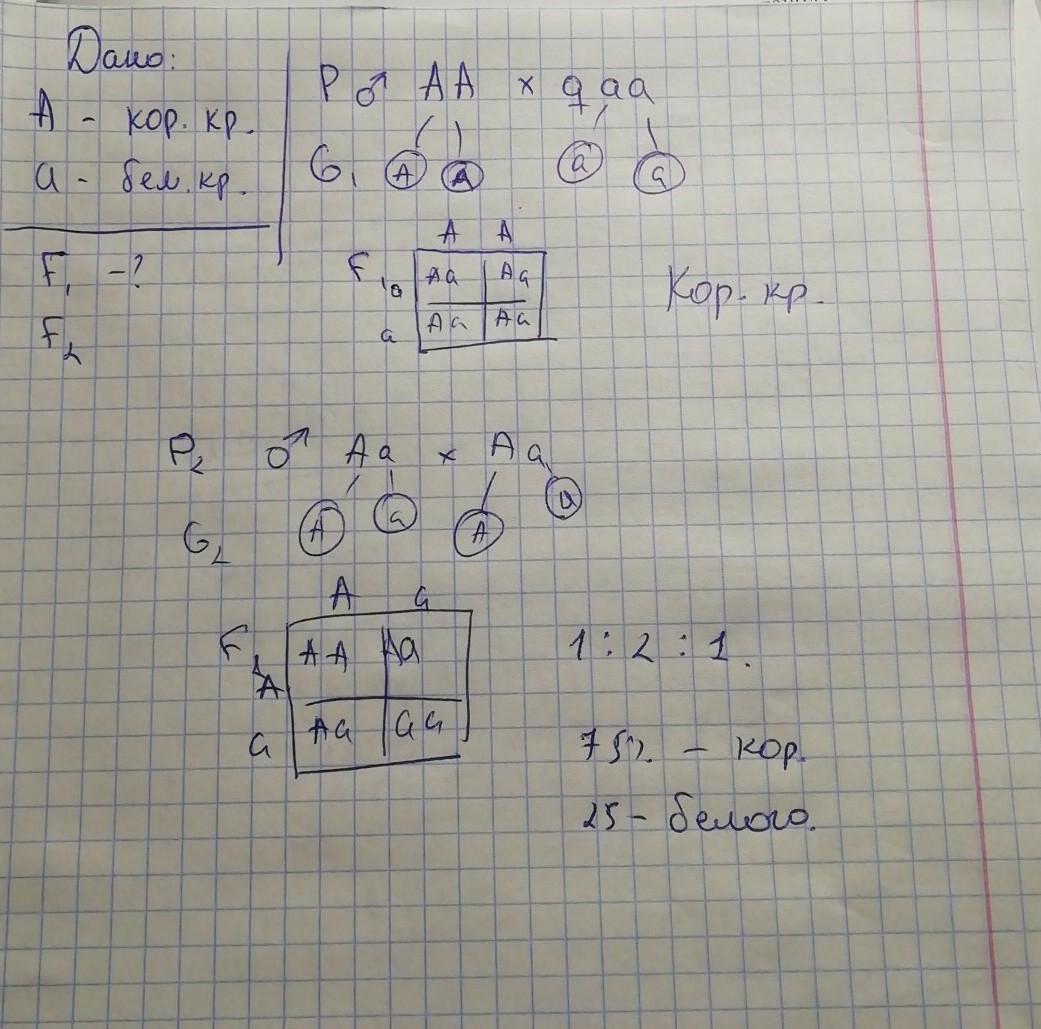 Дано:
А - кор. кр.
а - бел. кр.
F₁ -?
F₂
P ♂ AA × ♀ aa
G₁ A A a a
A A
F₁ a Aa Aa
a Aa Aa
Кор. кр.
P₂ ♂ Aa × Aa
G₂ A a A a
A a
F₂ A AA Aa
a Aa aa
1 : 2 : 1.
75% - кор.
25 - белого.